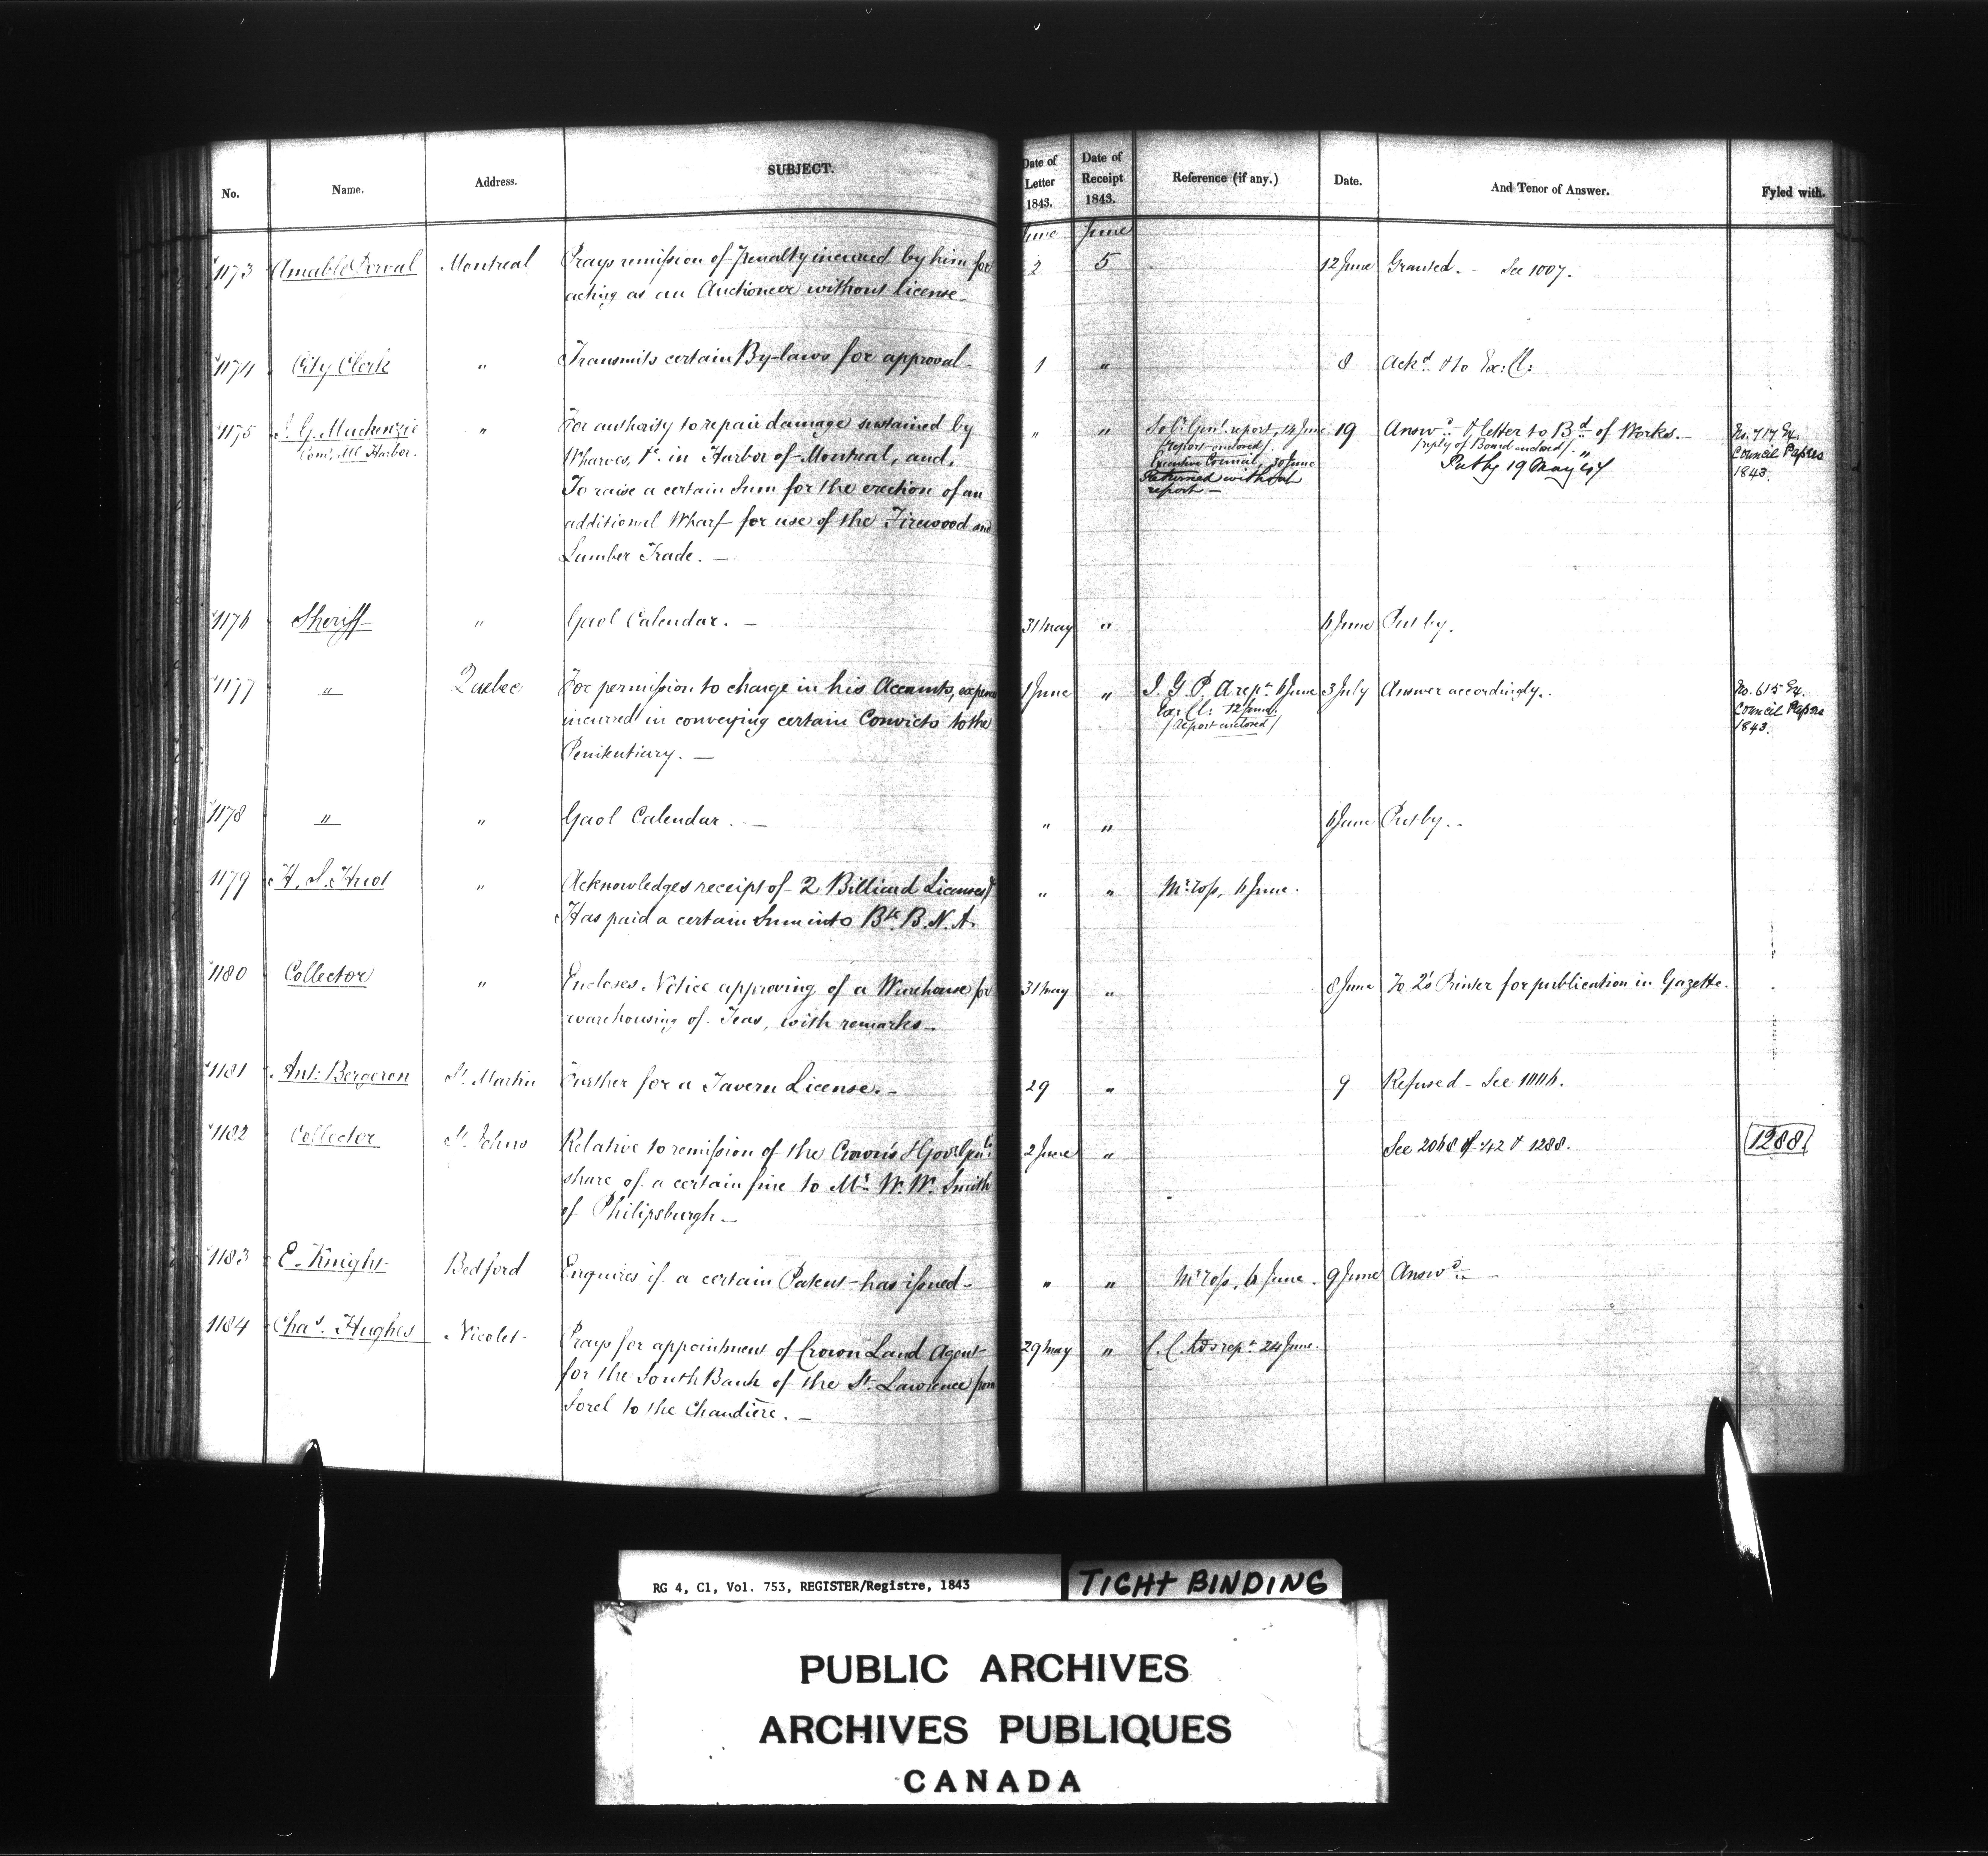 No. Name. Address. SUBJECT. Date of Letter 1843. Date of Receipt 1843. Reference (if any.) Date. And Tenor of Answer. Fyled with.
June June
1173 Amable Dorval Montreal Prays remission of Penalty incurred by him for 2 5 12 June Granted. — See 1007.
acting as an Auctioneer without license.
1174 City Clerk " Transmits certain By-laws for approval. 1 " 8 Ackd. & to Ex: Cl:
1175 J. G. Mackenzie " For authority to repair damage sustained by " " Solr. Genl. report, 14 June. 19 Answd. & letter to Bd. of Works. — No. 717 Ex.
Com. Ml. Harbor. Wharves, &c. in Harbor of Montreal, and, /report enclosed/. /reply of Board enclosed/. Council Papers
To raise a certain Sum for the erection of an Executive Council, 30 June Put by 19 May 47 1843.
additional Wharf for use of the Firewood and Returned without
Lumber Trade. — report —
1176 Sheriff " Gaol Calendar. — 31 May " 6 June Put by.
1177 " Quebec For permission to charge in his Accounts, expense 1 June " I. G. P. A rept. 6 June 3 July Answer accordingly. No. 615 Ex.
incurred in conveying certain Convicts to the Ex: Cl: 12 June. Council Papers
Penitentiary. — /report enclosed/ 1843.
1178 " " Gaol Calendar. — " " 6 June Put by. —
1179 H. S. Huot " Acknowledges receipt of 2 Billiard Licenses & " " Mr. Ross, 6 June.
Has paid a certain Sum into Bk. B. N. A.
1180 Collector " Encloses Notice approving of a Warehouse for 31 May " 8 June To Q's Printer for publication in Gazette.
warehousing of Teas, with remarks.
1181 Ant: Bergeron St. Martin Further for a Tavern License. — 29 " 9 Refused — See
1182 Collector St. Johns Relative to remission of the Crown's & Govr. Genl's 2 June " See 2068 of /42 & 1288. 1288
share of a certain fine to Mr. W. W. Smith
of Philipsburgh. —
1183 E. Knight Bedford Enquires if a certain Patent has issued — " " Mr Ross, 6 June. 9 June Answd. —
1184 Chas. Hughes Nicolet Prays for appointment of Crown Land Agent 29 May " rept. 24 June.
for the South Bank of the St. Lawrence from
Sorel to the Chaudière. —
RG 4, C1, Vol. 753, REGISTER/Registre, 1843
TIGHT BINDING
PUBLIC ARCHIVES
ARCHIVES PUBLIQUES
CANADA